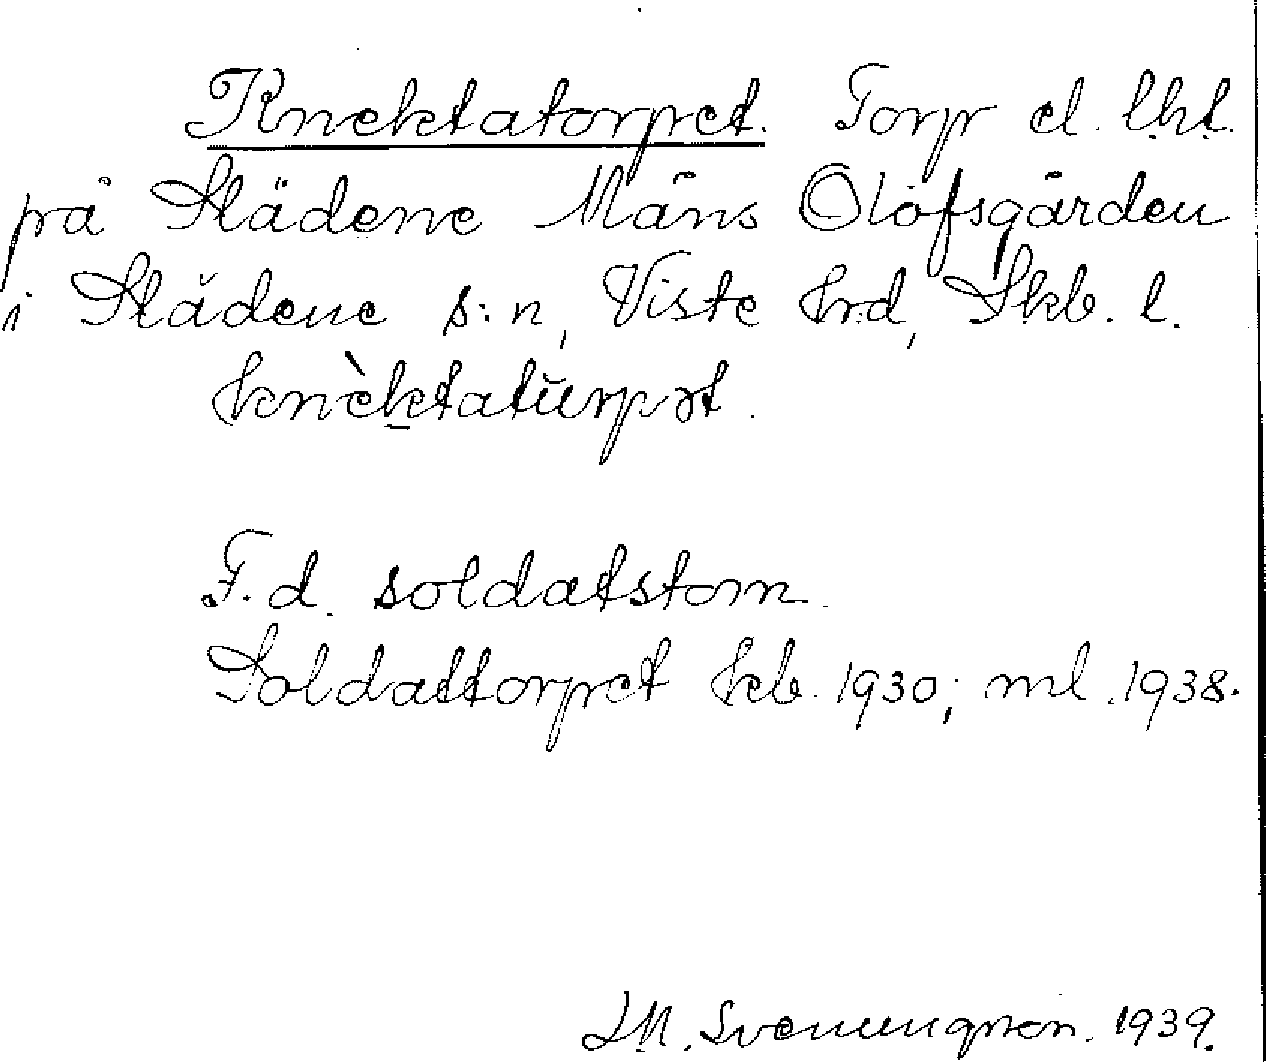 Knektatorpet. Torp el. lht.
på Slädene Måns Olofsgården
i Slädene s:n, Viste hrd, Skb. l.
knèktatŭrpət.
F.d. soldatstom.
Soldattorpet kb. 1930; ml. 1938.
S.M. Svenungson. 1939.